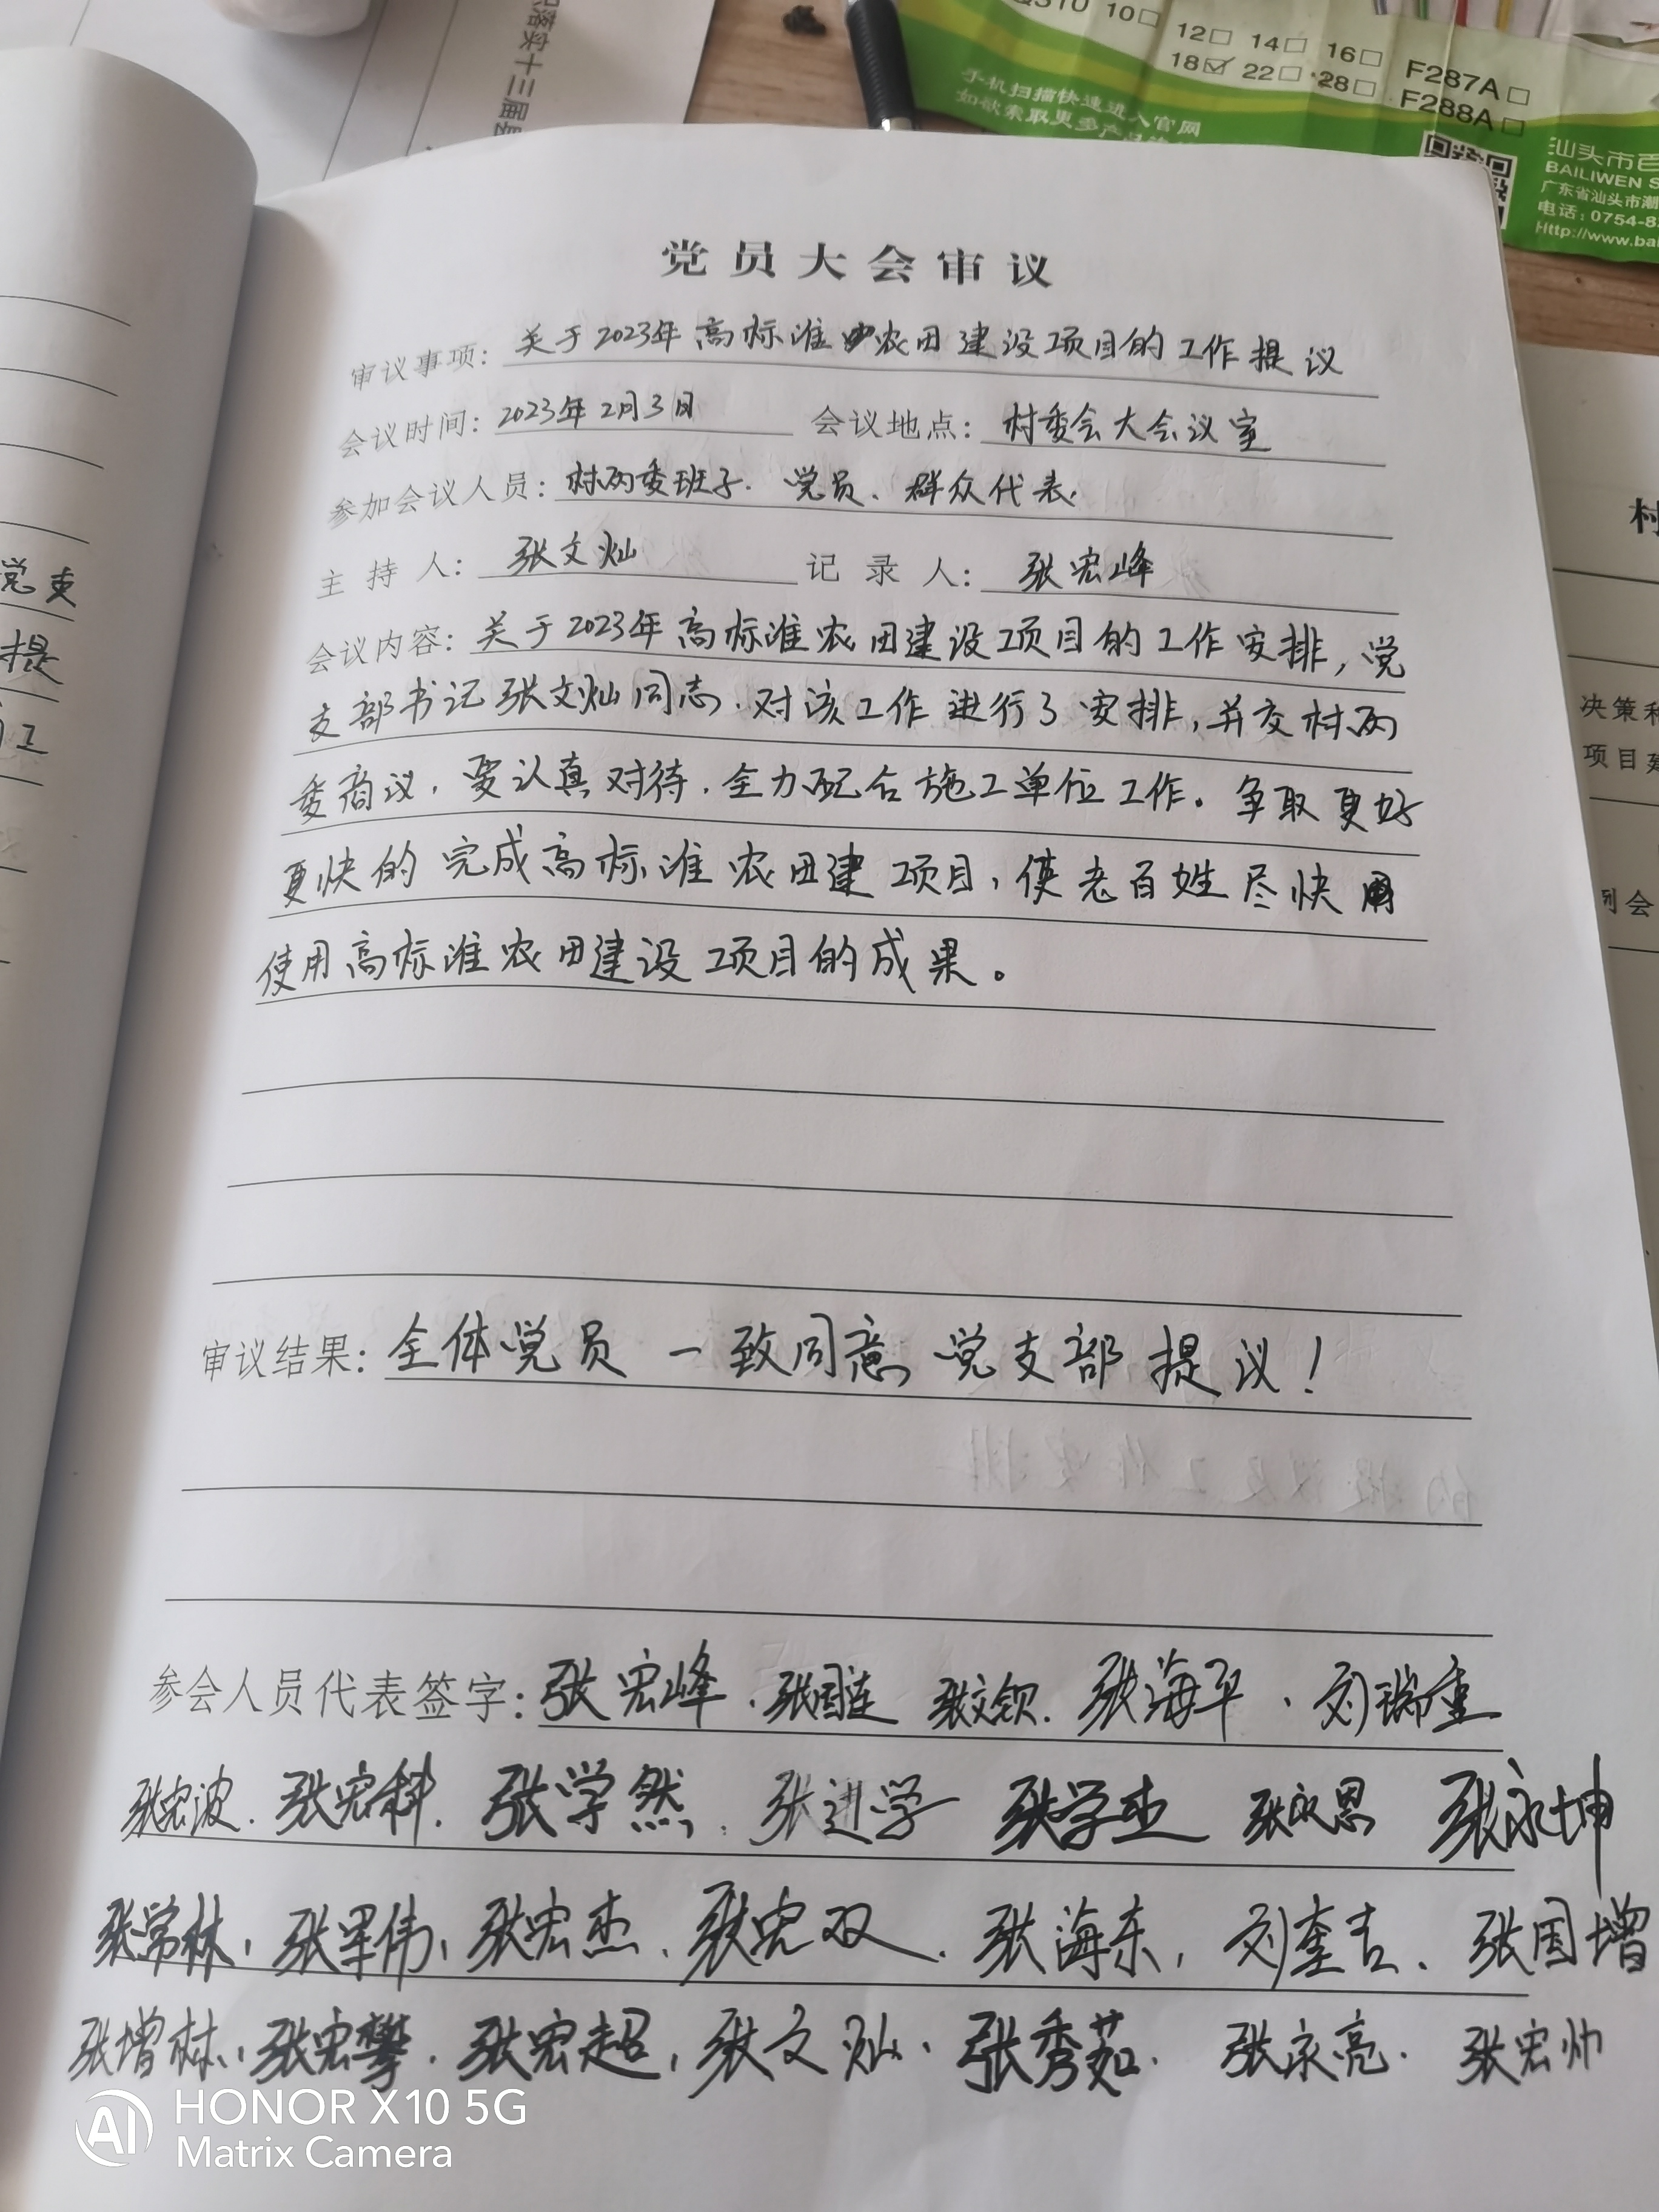 识落实十三届县
QS10 10□ 12□ 14□ 16□ F287A□
18☑ 22□ 28□ F288A□
手机扫描快速进入官网
如欲索取更多产品
汕头市百
BAILIWEN S
广东省汕头市潮
电话:0754-8
Http://www.bai
党支
提
工
党员大会审议
审议事项:关于2023年高标准农田建设项目的工作提议
会议时间:2023年2月3日 会议地点:村委会大会议室
参加会议人员:村两委班子.党员、群众代表.
主持人:张文灿 记录人:张宏峰
会议内容:关于2023年高标准农田建设项目的工作安排,党
支部书记张文灿同志.对该工作进行了安排,并交村两
委商议.要认真对待.全力配合施工单位工作。争取更好
更快的完成高标准农田建项目,使老百姓尽快
使用高标准农田建设项目的成果。
审议结果:全体党员一致同意党支部提议!
参会人员代表签字:张宏峰.张国连 张文钦.张海平.刘瑞重
张宏波.张宏科.张学然.张进学 张学杰 张永恩 张永坤
张常林,张军伟,张宏杰.张宏双.张海东,刘奎吉、张国增
张增林,张宏攀.张宏超,张文灿.张秀茹.张永亮.张宏帅
村
决策和
项目建
列会
HONOR X10 5G
Matrix Camera
AI